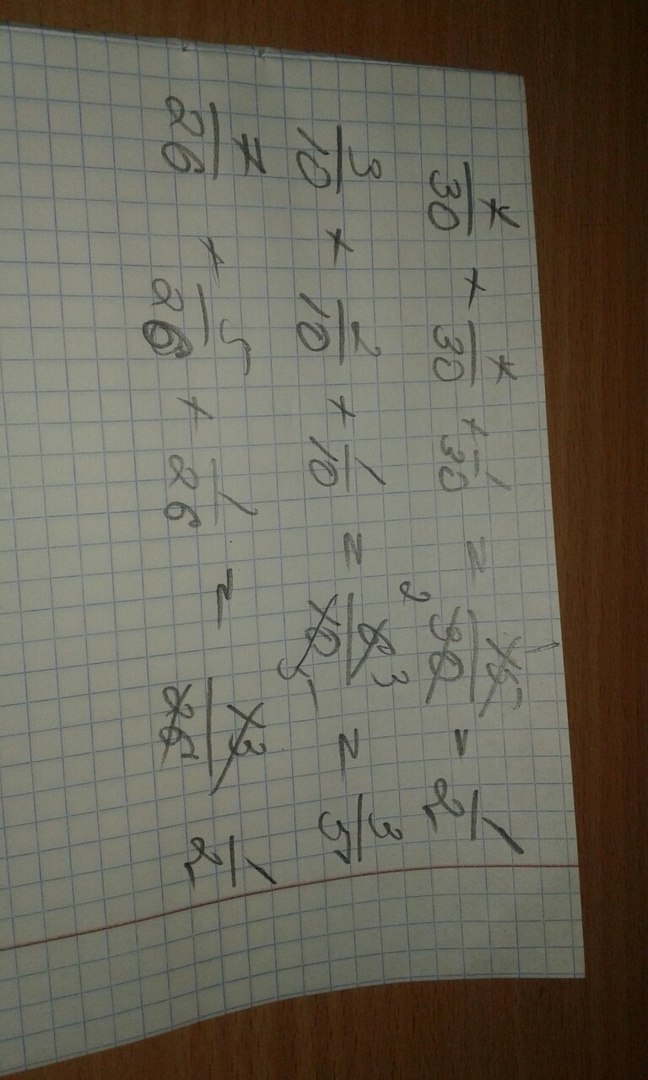 7/30 + 7/30 + 1/30 = 15/30 = 1/2
3/10 + 2/10 + 1/10 = 6/10 = 3/5
7/26 + 5/26 + 1/26 = 13/26 1/2